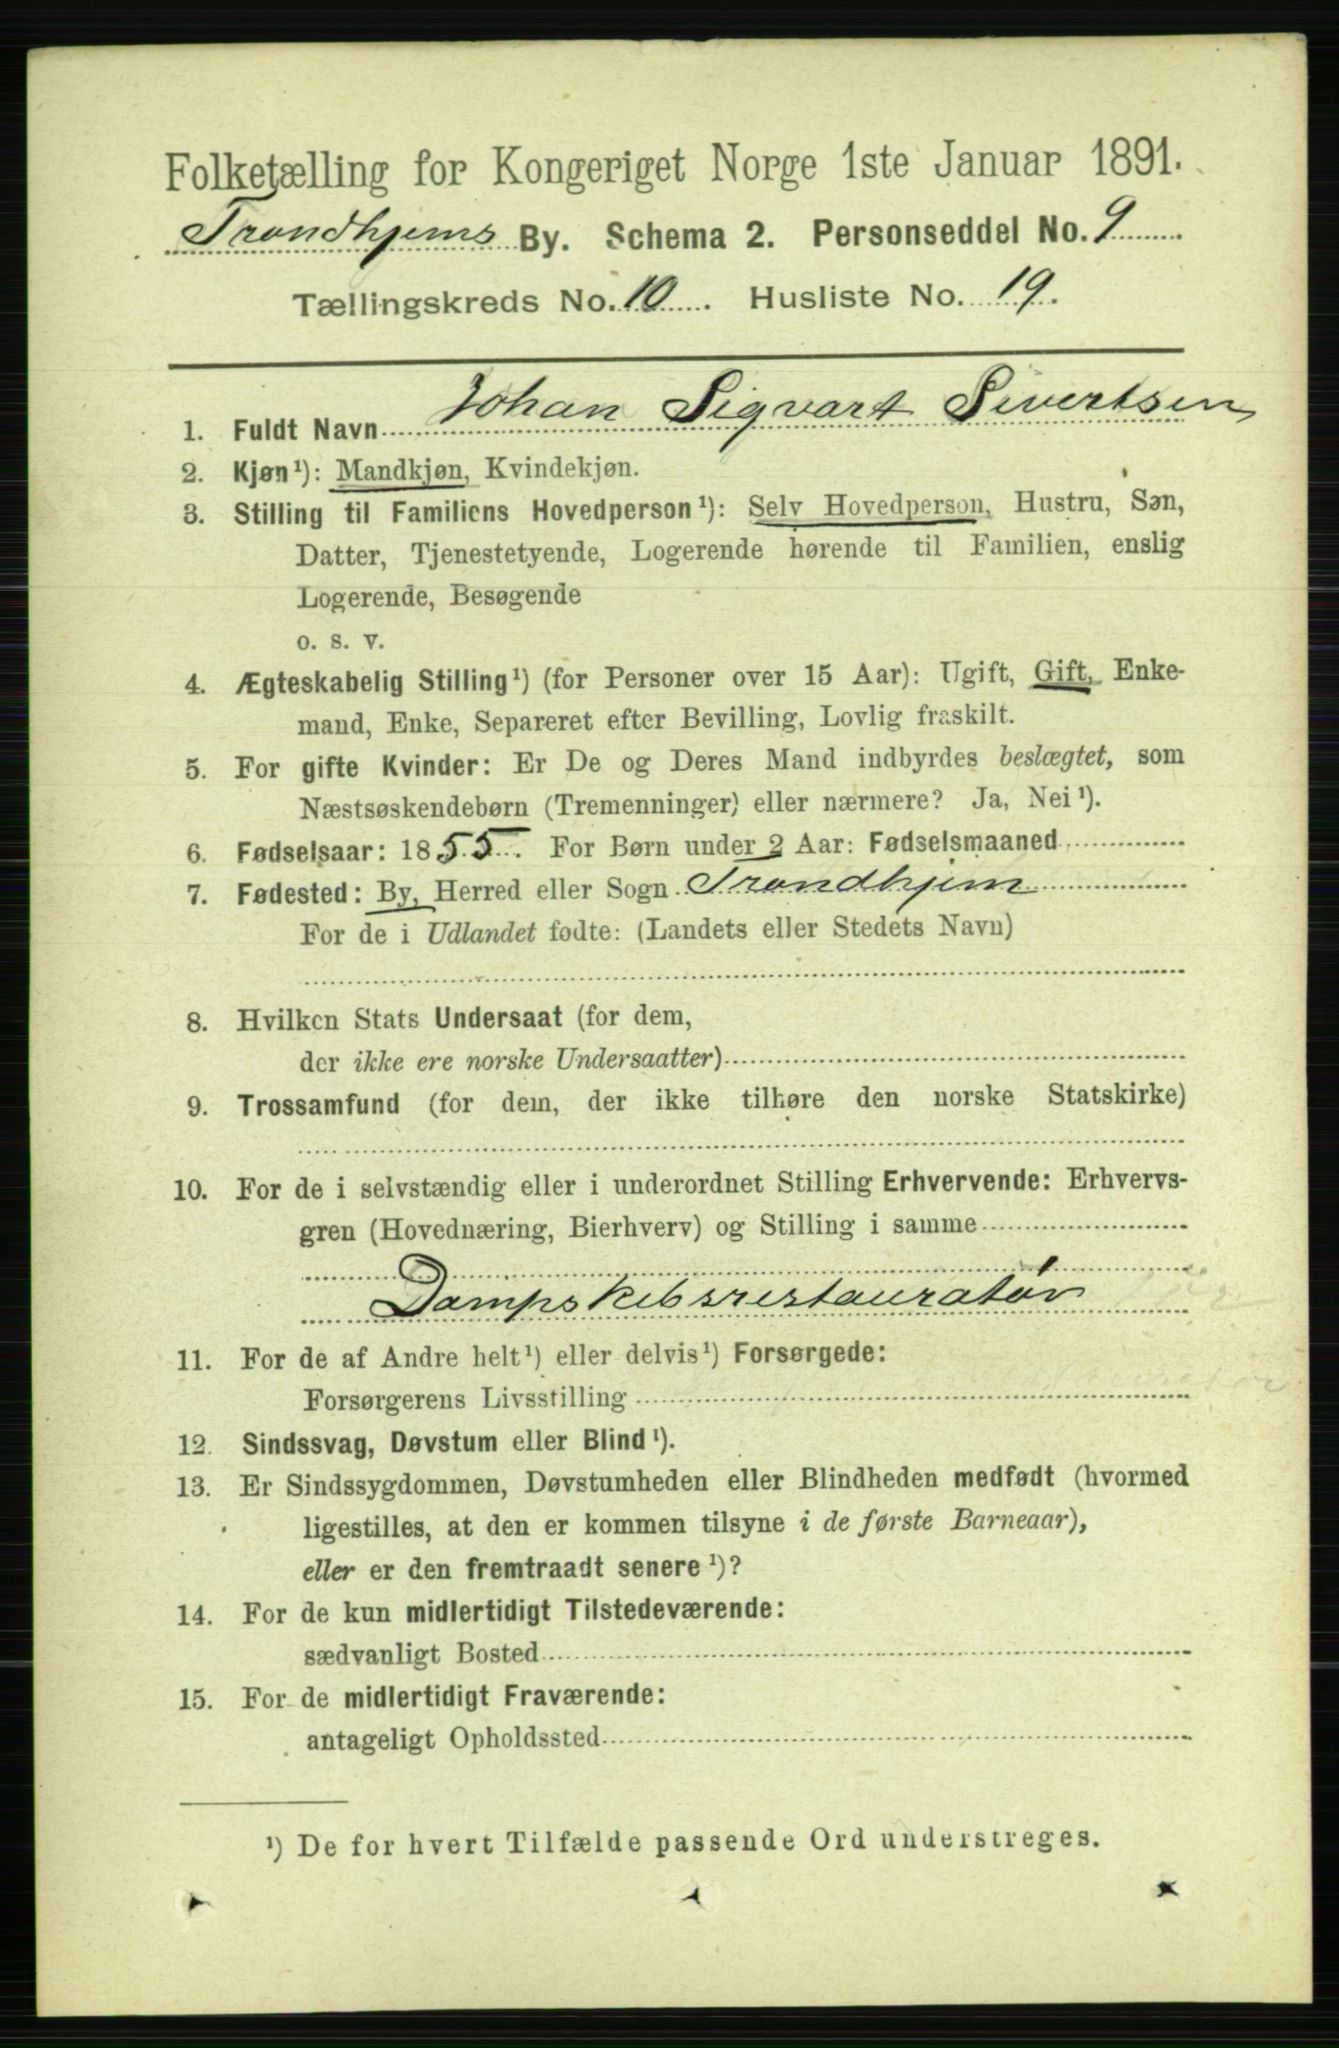 Folketælling for Kongeriget Norge 1ste Januar 1891.
Trondhjems By. Schema 2. Personseddel No. 9
Tællingskreds No. 10. Husliste No. 19.
1. Fuldt Navn Johan Sigvart Sivertsen
2. Kjøn¹): Mandkjøn, Kvindekjøn.
3. Stilling til Familiens Hovedperson¹): Selv Hovedperson, Hustru, Søn,
Datter, Tjenestetyende, Logerende hørende til Familien, enslig
Logerende, Besøgende
o. s. v.
4. Ægteskabelig Stilling¹) (for Personer over 15 Aar): Ugift, Gift, Enke-
mand, Enke, Separeret efter Bevilling, Lovlig fraskilt.
5. For gifte Kvinder: Er De og Deres Mand indbyrdes beslægtet, som
Næstsøskendebørn (Tremenninger) eller nærmere? Ja, Nei¹).
6. Fødselsaar: 1855. For Børn under 2 Aar: Fødselsmaaned
7. Fødested: By, Herred eller Sogn Trondhjem
For de i Udlandet fødte: (Landets eller Stedets Navn)
8. Hvilken Stats Undersaat (for dem,
der ikke ere norske Undersaatter)
9. Trossamfund (for dem, der ikke tilhøre den norske Statskirke)
10. For de i selvstændig eller i underordnet Stilling Erhvervende: Erhvervs-
gren (Hovednæring, Bierhverv) og Stilling i samme
Dampskibsrestauratør
11. For de af Andre helt¹) eller delvis¹) Forsørgede:
Forsørgerens Livsstilling
12. Sindssvag, Døvstum eller Blind¹).
13. Er Sindssygdommen, Døvstumheden eller Blindheden medfødt (hvormed
ligestilles, at den er kommen tilsyne i de første Barneaar),
eller er den fremtraadt senere¹)?
14. For de kun midlertidigt Tilstedeværende:
sædvanligt Bosted
15. For de midlertidigt Fraværende:
antageligt Opholdssted
¹) De for hvert Tilfælde passende Ord understreges.